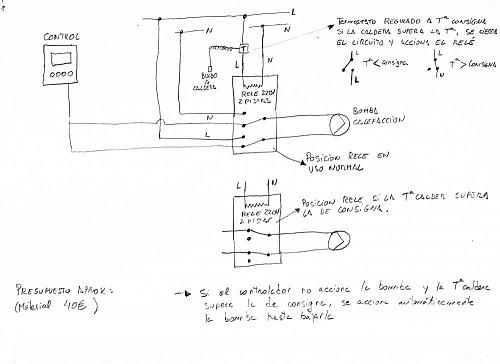 CONTROL
L
N
N
TERMOSTATO REGULADO A Tª CONSIGNA
SI LA CALDERA SUPERA LA Tª, SE CIERRA
EL CIRCUITO Y ACCIONA EL RELÉ
T
L
N
L
L
L
L
Tª < consigna
Tª > CONSIGNA
BULBO
A
CALDERA
RELE 220V
2 PISTAS
N
L
BOMBA
CALEFACCION
POSICION RELE EN
USO NORMAL
L
N
RELE 220V
2 PISTAS
POSICION RELE, SI LA Tª CALDER SUPERA
LA DE CONSIGNA.
PRESUPUESTO APROX:
(Material 40€)
Si el controlador no acciona la bomba y la Tª caldera
supera la de consigna, se acciona automáticamente
la bomba hasta bajarla